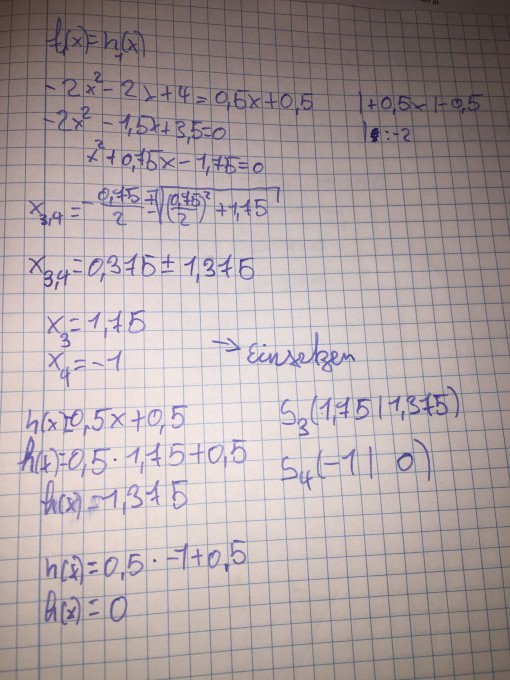 f(x)=h(x)
-2x²-2x+4=0,5x+0,5 |+0,5x |-0,5
-2x²-1,5x+3,5=0 |:-2
x²+0,75x-1,75=0
x₃,₄=-0,75/2±√((0,75/2)²+1,75)
x₃,₄=0,375±1,375
x₃=1,75
x₄=-1 → Einsetzen
h(x)=0,5x+0,5 S₃(1,75|1,375)
h(x)=0,5·1,75+0,5 S₄(-1|0)
h(x)=1,375
h(x)=0,5·-1+0,5
h(x)=0